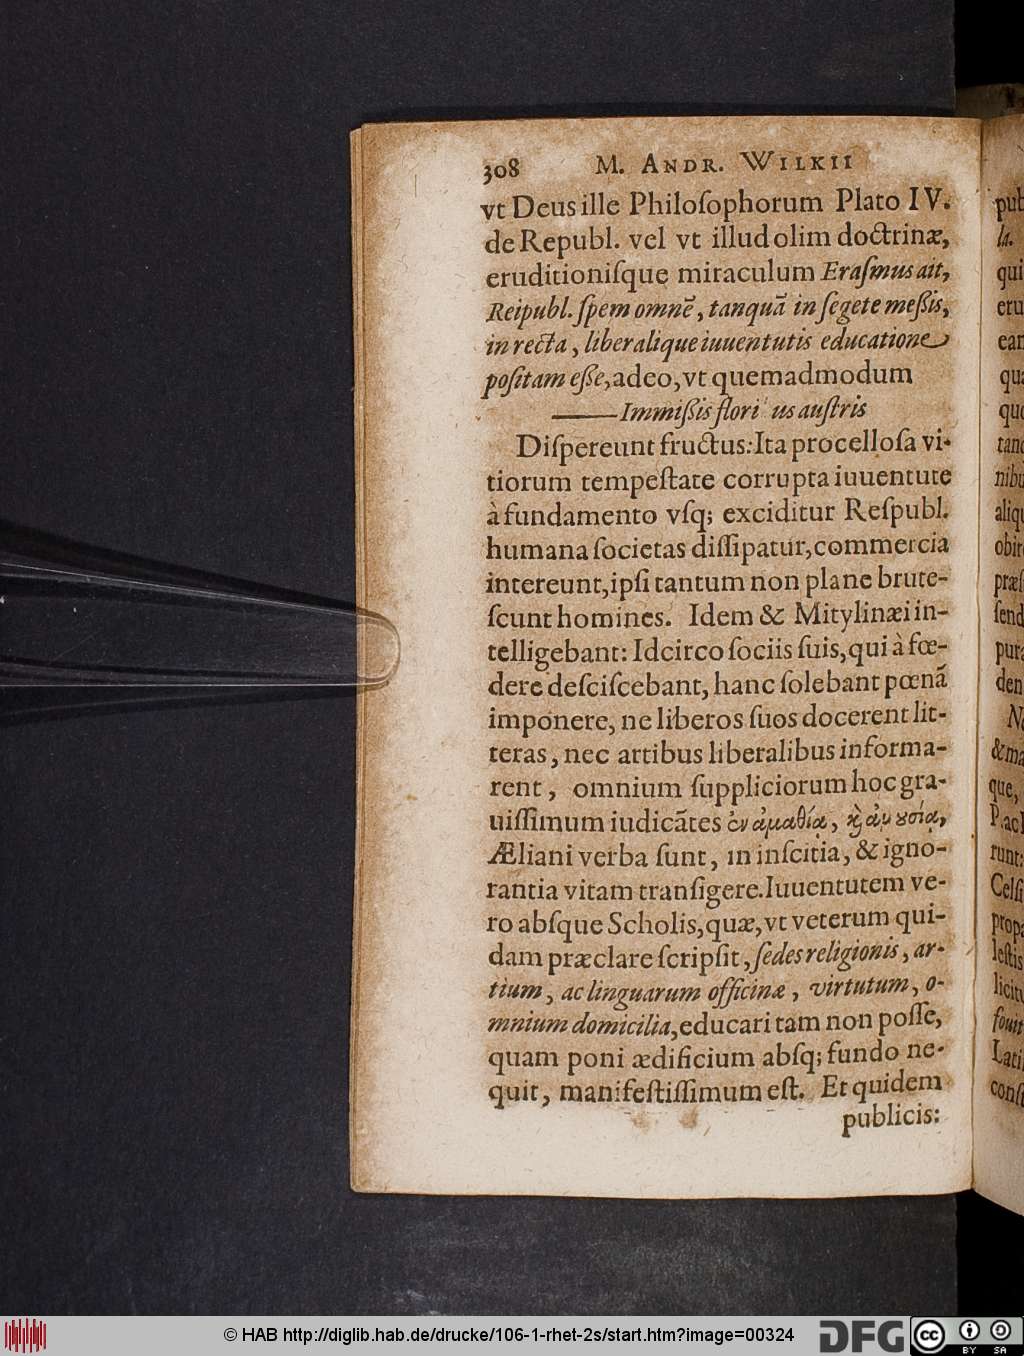 308 M. ANDR. WILKII
vt Deus ille Philoſophorum Plato IV.
de Republ. vel vt illud olim doctrinæ,
eruditioniſque miraculum Eraſmus ait,
Reipubl. ſpem omnē, tanquā in ſegete meſſis,
in recta, liberalique iuuentutis educatione
poſitam eſſe, adeo, vt quemadmodum
—Immiſſis flori us auſtris
Diſpereunt fructus: Ita procelloſa vi-
tiorum tempeſtate corrupta iuuentute
à fundamento vſq; exciditur Reſpubl.
humana ſocietas diſſipatur, commercia
intereunt, ipſi tantum non plane brute-
ſcunt homines. Idem & Mitylinæi in-
telligebant: Idcirco ſociis ſuis, qui à fœ-
dere deſciſcebant, hanc ſolebant pœnā
imponere, ne liberos ſuos docerent lit-
teras, nec artibus liberalibus informa-
rent, omnium ſuppliciorum hoc gra-
uiſſimum iudicātes ἐν ἀμαθίᾳ, ϗ
Æliani verba ſunt, in inſcitia, & igno-
rantia vitam tranſigere. Iuuentutem ve-
ro abſque Scholis, quæ, vt veterum qui-
dam præclare ſcripſit, ſedes religionis, ar-
tium, ac linguarum officinæ, virtutum, o-
mnium domicilia, educari tam non poſſe,
quam poni ædificium abſq; fundo ne-
quit, manifeſtiſſimum eſt. Et quidem
publicis:
pub
la.
qui
eru
ean
qua
quo
tanq
nibu
aliqu
obire
præſ
ſend
pura
den
No
& ma
que,
P. ac
runt:
Celſi
propa
leſtis
licitu
fouit
Lati
conſt
© HAB http://diglib.hab.de/drucke/106-1-rhet-2s/start.htm?image=00324
DFG
cc BY SA